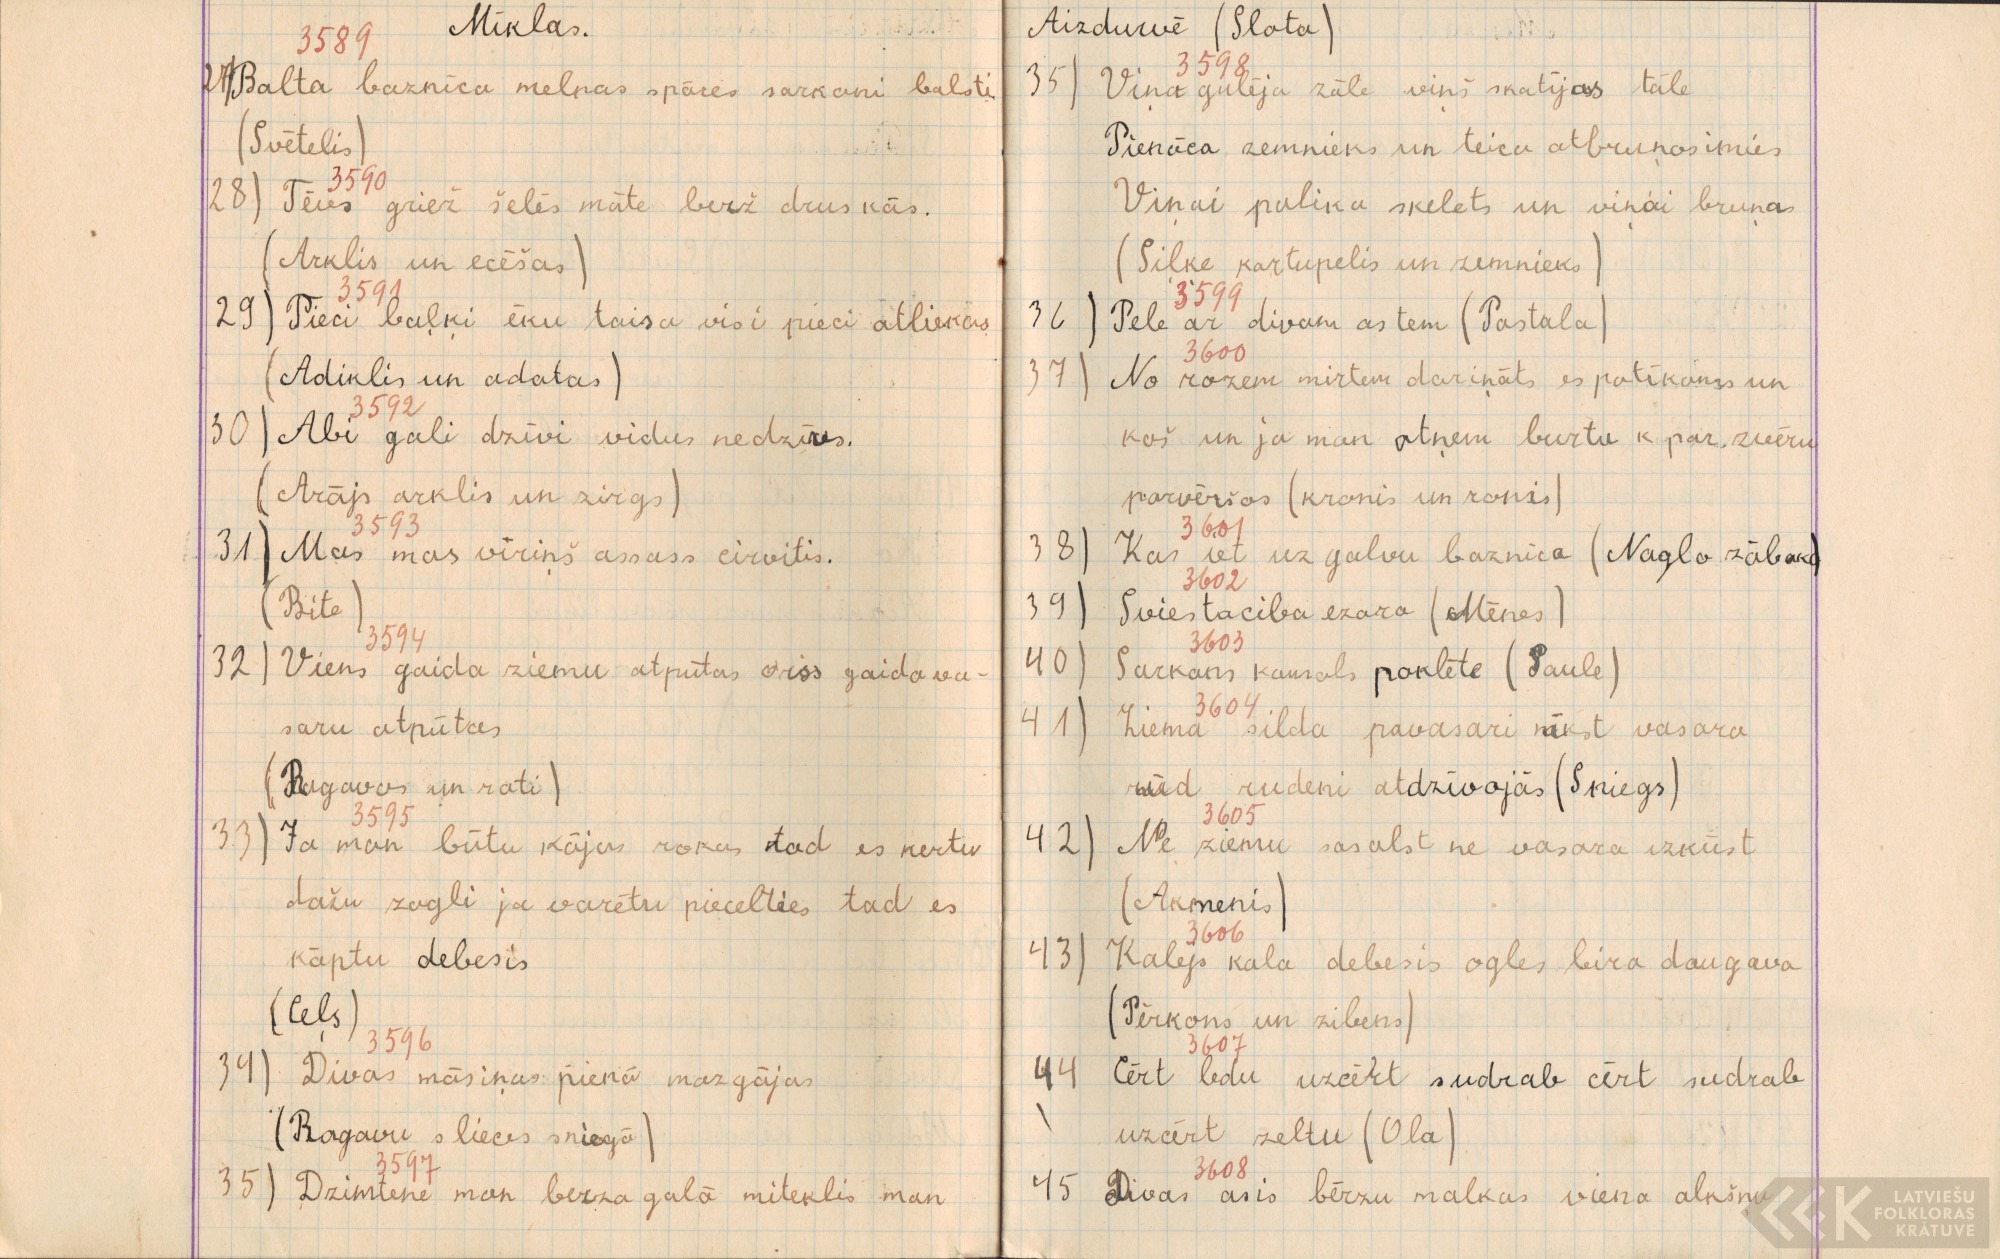 Mīklas.
3589
27) Balta baznīca melnas spāres sarkani balsti
(Svētelis)
3590
28) Tēvs griež šēlēs māte berž druskās.
(Arklis un ecēšas)
3591
29) Pieci baļķi ēku taisa visi pieci atliekas
(Adiklis un adatas)
3592
30) Abi gali dzīvi vidus nedzīvs.
(Arājs arklis un zirgs)
3593
31) Mas mas vīriņš assass cirvitis.
(Bite)
3594
32) Viens gaida ziemu atpūtas otrss gaida va-
saru atpūtas
(Ragavas un rati)
3595
33) Ja man būtu kājas rokas tad es kertu
dažu zagli ja varētu piecelties tad es
kāptu debesis
(Ceļš)
3596
34) Divas māsiņas pienā mazgājas
(Ragavu slieces sniegā)
3597
35) Dzimtene man berza galā miteklis man
Aizdurvē (Slota)
3598
35) Viņa gulēja zāle viņš skatījas tāle
Pienāca zemnieks un teica atbruņosimies
Viņai palika skelets un viņai bruņas
(Siļķe kartupelis un zemnieks)
3599
36) Pele ar divam astem (Pastala)
3600
37) No rozem mirtem dariņāts es patīkams un
koš un ja man atņem burtu k par zvēru
parvēršos (kronis un ronis)
3601
38) Kas iet uz galvu baznīca (Nagla zābakā)
3602
39) Sviestaciba ezara (Mēnes)
3603
40) Sarkans kamols paklēte (Saule)
3604
41) Ziema silda pavasari nīkst vasara
rūd rudeni atdzīvojās (Sniegs)
3605
42) Ne ziemu sasalst ne vasara izkūst
(Akmenis)
3606
43) Kalejs kala debesis ogles bira daugava
(Pērkons un zibens)
3607
44) Cērt ledu uzcērt sudrab cērt sudrab
uzcērt zeltu (Ola)
3608
45 Divas asis bērzu malkas viena alkšņu
LATVIEŠU
FOLKLORAS
KRĀTUVE